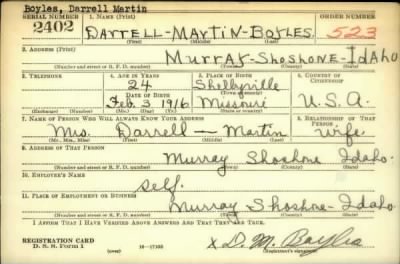 Boyles, Darrell Martin
SERIAL NUMBER
2402
1. NAME (Print)
DARRELL-MARTIN-BOYLES.
523
(First) (Middle) (Last)
2. ADDRESS (Print)
MURRAY-SHOSHONE-IDAHO
(Number and street or R. F. D. number) (Town) (County) (State)
3. TELEPHONE
4. AGE IN YEARS
24
5. PLACE OF BIRTH
Shelbyville
6. COUNTRY OF CITIZENSHIP
DATE OF BIRTH
Feb. 3 1916
Missouri
U.S.A.
(Exchange) (No.)
(Mo.) (Day) (Yr.)
(State or country)
7. NAME OF PERSON WHO WILL ALWAYS KNOW YOUR ADDRESS
8. RELATIONSHIP OF THAT PERSON
Mrs. Darrell — Martin
wife
(Mr., Mrs., Miss) (First) (Middle) (Last)
9. ADDRESS OF THAT PERSON
Murray Shoshone Idaho.
(Number and street or R. F. D. number) (Town) (County) (State)
10. EMPLOYER'S NAME
self.
11. PLACE OF EMPLOYMENT OR BUSINESS
Murray Shoshone-Idaho.
(Number and street or R. F. D. number) (Town) (County) (State)
I AFFIRM THAT I HAVE VERIFIED ABOVE ANSWERS AND THAT THEY ARE TRUE.
REGISTRATION CARD
D. S. S. Form 1
16-17105
x D. M. Boyles
(Registrant's signature)